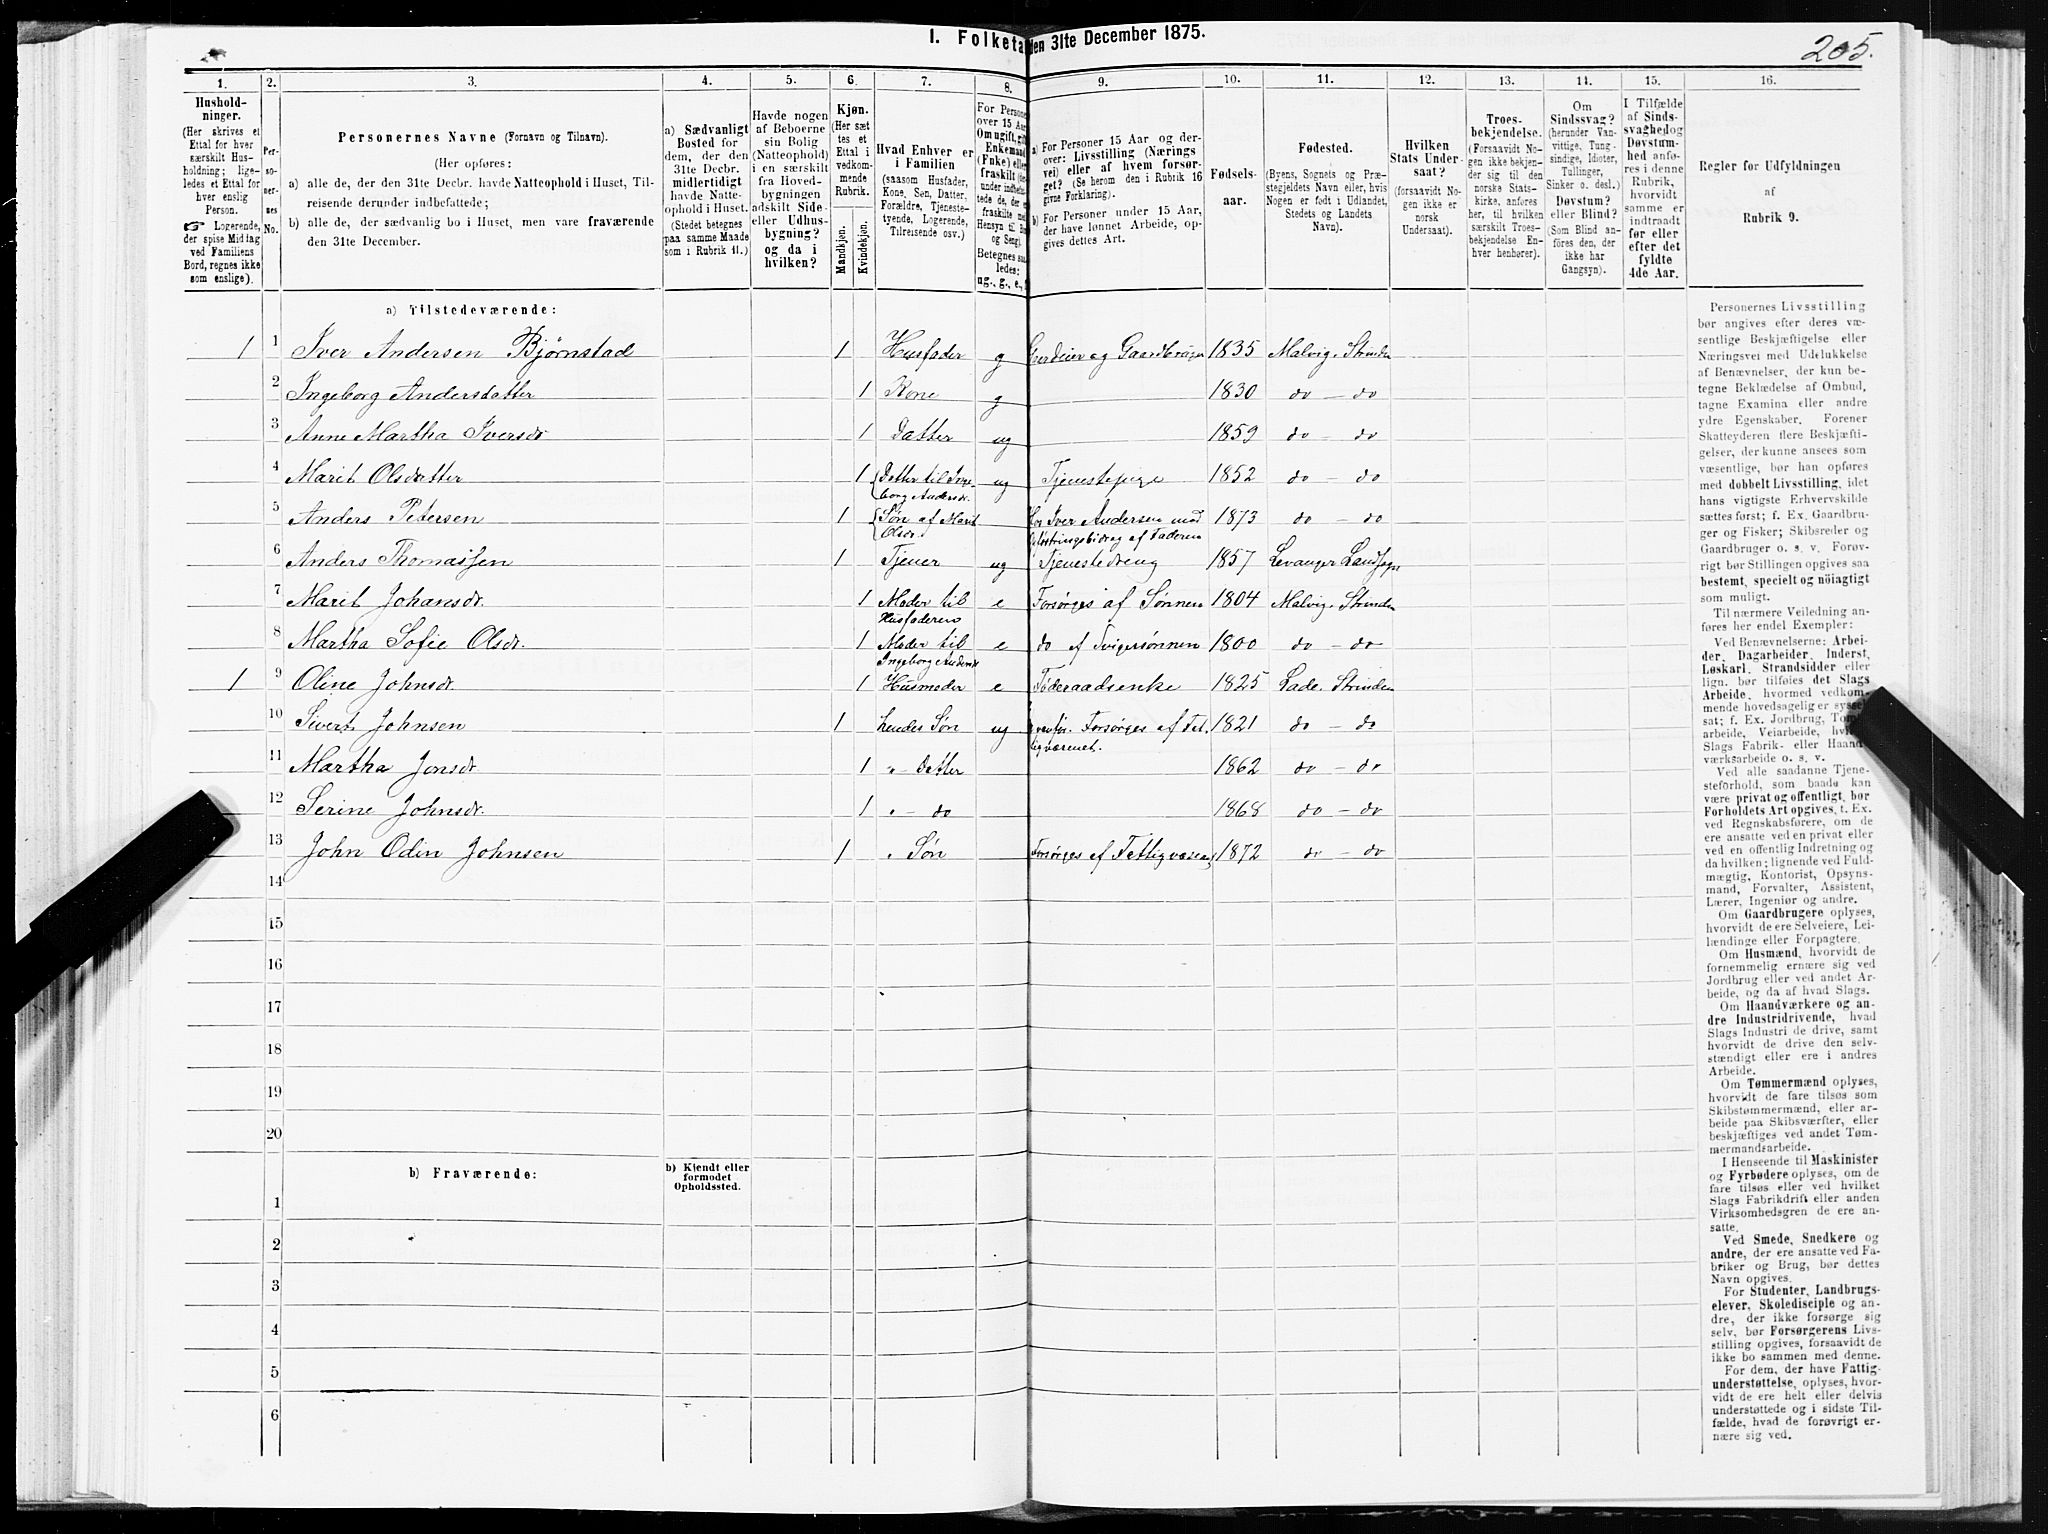 1. Folketa
den 31te December 1875.
205.
1. 2. 3. 4. 5. 6. 7. 8. 9. 10. 11. 12. 13. 14. 15. 16.
Hushold-
ninger.
(Her skrives et
Ettal for hver
særskilt Hus-
holdning; lige-
ledes et Ettal for
hver enslig
Person.
☞ Logerende,
der spise Midtag
ved Familiens
Bord, regnes ikke
som enslige).
Per-
so-
ner-
nes
No.
Personernes Navne (Fornavn og Tilnavn).
(Her opføres:
a) alle de, der den 31te Decbr. havde Natteophold i Huset, Til-
reisende derunder indbefattede;
b) alle de, der sædvanlig bo i Huset, men vare fraværende
den 31te December.
a) Sædvanligt
Bosted for
dem, der den
31te Decbr.
midlertidigt
havde Natte-
ophold i Huset.
(Stedet betegnes
paa samme Maade
som i Rubrik 11.)
Havde nogen
af Beboerne
sin Bolig
(Natteophold)
i en særskilt
fra Hoved-
bygningen
adskilt Side-
eller Udhus-
bygning?
og da i
hvilken?
Kjøn.
(Her sæt
tes et
Ettal i
vedkom-
mende
Rubrik.
Mandkjøn.
Kvindekjøn.
Hvad Enhver er
i Familien
(saasom Husfader,
Kone, Søn, Datter,
Forældre, Tjeneste-
tyende, Logerende,
Tilreisende osv.)
For Persone
over 15 Aar
Om ugift, gif
Enkemand
(Enke) eller
fraskilt (he
under indbefa
tede de, der e
fraskilte me
Hensyn til Bo
og Seng).
Betegnes saa
ledes:
ug., g., e., f.
a) For Personer 15 Aar og der-
over: Livsstilling (Nærings
vei) eller af hvem forsør-
get? (Se herom den i Rubrik 16
givne Forklaring).
b) For Personer under 15 Aar,
der have lønnet Arbeide, op-
gives dettes Art.
Fødsels-
aar.
Fødested.
(Byens, Sognets og Præ-
stegjeldets Navn eller, hvis
Nogen er født i Udlandet,
Stedets og Landets
Navn).
Hvilken
Stats Under-
saat?
(forsaavidt No-
gen ikke er
norsk
Undersaat).
Troes-
bekjendelse.
(Forsaavidt No-
gen ikke bekjen-
der sig til den
norske Stats-
kirke, anføres
her, til hvilken
særskilt Troes-
bekjendelse En-
hver henhører).
Om
Sindssvag?
(herunder Van-
vittige, Tung-
sindige, Idioter,
Tullinger,
Sinker o. desl.)
Døvstum?
eller Blind?
(Som Blind an-
føres den, der
ikke har
Gangsyn).
I Tilfælde
af Sinds-
svaghed og
Døvstum-
hed anfø-
res i denne
Rubrik,
hvorvidt
samme er
indtraadt
før eller
efter det
fyldte
4de Aar.
Regler for Udfyldningen
af
Rubrik 9.
a) Tilstedeværende:
1 1 Iver Andersen Bjørnstad 1 Husfader g Gaardeier og Gaardbruger 1835 Malvig. Strinden
2 Ingeborg Andersdatter 1 Kone g 1830 do — do
3 Anne Martha Iversdr 1 Datter ug 1859 do — do
4 Marit Olsdatter 1 Datter til Inge-
borg Andersdr. ug Tjenestepige 1852 do — do
5 Anders Petersen 1 Søn af Marit
Olsdr. Hos Iver Andersen med
Opfostringsbidrag af Faderen 1873 do — do
6 Anders Thomassen 1 Tjener ug Tjenestedreng 1857 Levanger Landsogn
7 Marit Johansdr. 1 Moder til
Husfaderen e Forsørges af Sønnen 1804 Malvig. Strinden
8 Martha Sofie Olsdr. 1 Moder til
Ingeborg Andersdr e do af Svigersønnen 1800 do — do
1 9 Oline Johnsdr. 1 Husmoder e Føderaadsenke 1825 Lade. Strinden
10 Sivert Johnsen 1 hendes Søn ug Forsørges af Fat-
tigvæsenet. 1821 do — do
11 Martha Jonsdr. 1 " - Datter 1862 do — do
12 Serine Johnsdr. 1 " - do 1868 do — do
13 John Odin Johnsen 1 " Søn Forsørges af Fattigvæsenet 1872 do — do
14
15
16
17
18
19
20
b) Fraværende:
b) Kjendt eller
formodet
Opholdssted.
1
2
3
4
5
6
Personernes Livsstilling
bør angives efter deres væ-
sentlige Beskjæftigelse eller
Næringsvei med Udelukkelse
af Benævnelser, der kun be-
tegne Beklædelse af Ombud,
tagne Examina eller andre
ydre Egenskaber. Forener
Skatteyderen flere Beskjæfti-
gelser, der kunne ansees som
væsentlige, bør han opføres
med dobbelt Livsstilling, idet
hans vigtigste Erhvervskilde
sættes først; f. Ex. Gaardbru-
ger og Fisker; Skibsreder og
Gaardbruger o. s. v. Forøv-
rigt bør Stillingen opgives saa
bestemt, specielt og nöiagtigt
som muligt.
Til nærmere Veiledning an-
føres her endel Exempler:
Ved Benævnelserne: Arbei-
der, Dagarbeider, Inderst,
Løskarl, Strandsidder eller
lign. bør tilføies det Slags
Arbeide, hvormed vedkom-
mende hovedsagelig er syssel
sat; f. Ex. Jordbrug, Tom
arbeide, Veiarbeide, hv
Slags Fabrik- eller Haand
værksarbeide o. s. v.
Ved alle saadanne Tjene-
steforhold, som baade kan
være privat og offentligt, bør
Forholdets Art opgives, t. Ex.
ved Regnskabsførere, om de
ere ansatte ved en privat eller
ved en offentlig Indretning og
da hvilken; lignende ved Fuld-
mægtig, Kontorist, Opsyns-
mand, Forvalter, Assistent,
Lærer, Ingeniør og andre.
Om Gaardbrugere oplyses,
hvorvidt de ere Selveiere, Lei-
lændinge eller Forpagtere.
Om Husmænd, hvorvidt de
fornemmelig ernære sig ved
Jordbrug eller ved andet Ar-
beide, og da af hvad Slags.
Om Haandværkere og an-
dre Industridrivende, hvad
Slags Industri de drive, samt
hvorvidt de drive den selv-
stændigt eller ere i andres
Arbeide.
Om Tømmermænd oplyses,
hvorvidt de fare tilsøs som
Skibstømmermænd, eller ar-
beide paa Skibsværfter, eller
beskjæftiges ved andet Tøm-
mermandsarbeide.
I Henseende til Maskinister
og Fyrbødere oplyses, om de
fare tilsøs eller ved hvilket
Slags Fabrikdrift eller anden
Virksomhedsgren de ere an-
satte.
Ved Smede, Snedkere og
andre, der ere ansatte ved Fa-
briker og Brug, bør dettes
Navn opgives.
For Studenter, Landbrugs-
elever, Skoledisciple og an-
dre, der ikke forsørge sig
selv, bør Forsørgerens Livs-
stilling opgives, forsaavidt de
ikke bo sammen med denne.
For dem, der have Fattig-
understøttelse, oplyses, hvor-
vidt de ere helt eller delvis
understøttede og i sidste Til-
fælde, hvad de forøvrigt er-
nære sig ved.